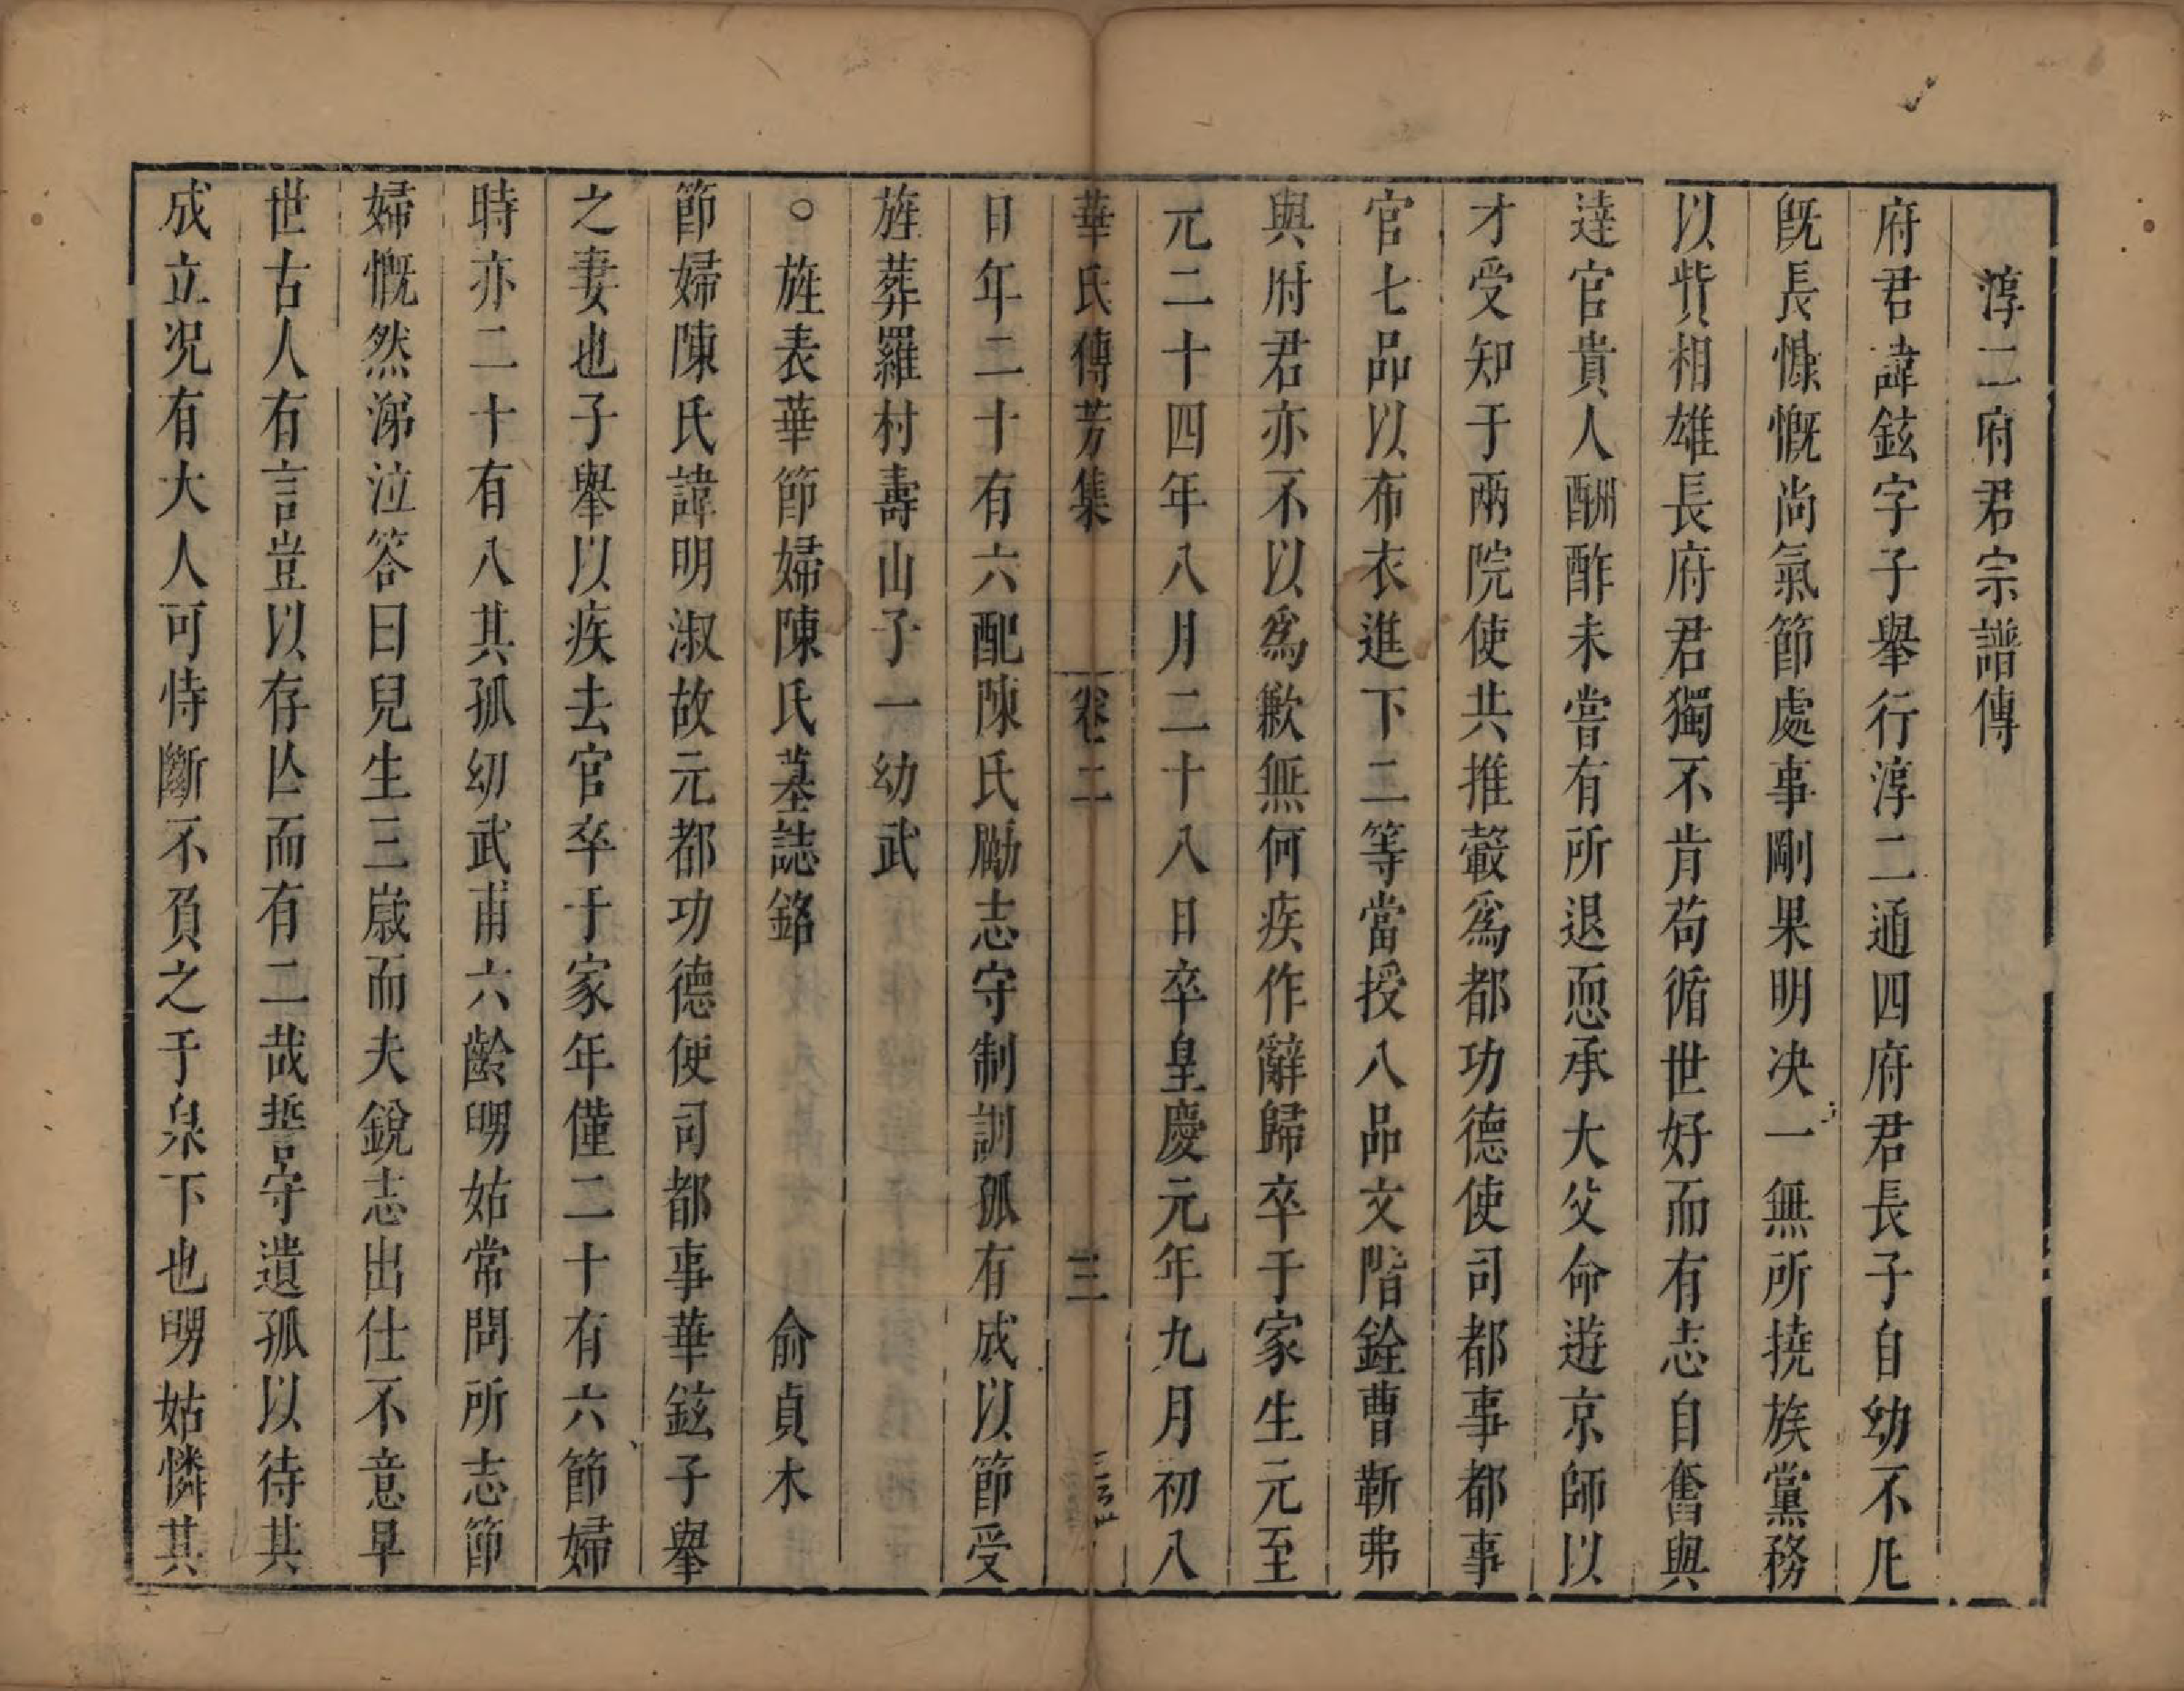 淳二府君宗譜傳
府君諱鉉字子舉行淳二通四府君長子自幼不凡
旣長慷慨尚氣節處事剛果明决一無所撓族黨務
以貲相雄長府君獨不肯苟循世好而有志自奮與
達官貴人酬酢未嘗有所退恧承大父命遊京師以
才受知于兩院使共推轂爲都功德使司都事都事
官七品以布衣進下二等當授八品文階銓曹靳弗
與府君亦不以爲歉無何疾作辭歸卒于家生元至
元二十四年八月二十八日卒皇慶元年九月初八
華氏傳芳集 卷二 三
日年二十有六配陳氏勵志守制訓孤有成以節受
旌葬羅村壽山子一幼武
○旌表華節婦陳氏墓誌銘 俞貞木
節婦陳氏諱明淑故元都功德使司都事華鉉子舉
之妻也子舉以疾去官卒于家年僅二十有六節婦
時亦二十有八其孤幼武甫六齡舅姑常問所志節
婦慨然涕泣答曰兒生三歲而夫銳志出仕不意早
世古人有言豈以存亾而有二哉誓守遺孤以待其
成立况有大人可恃斷不負之于泉下也舅姑憐其